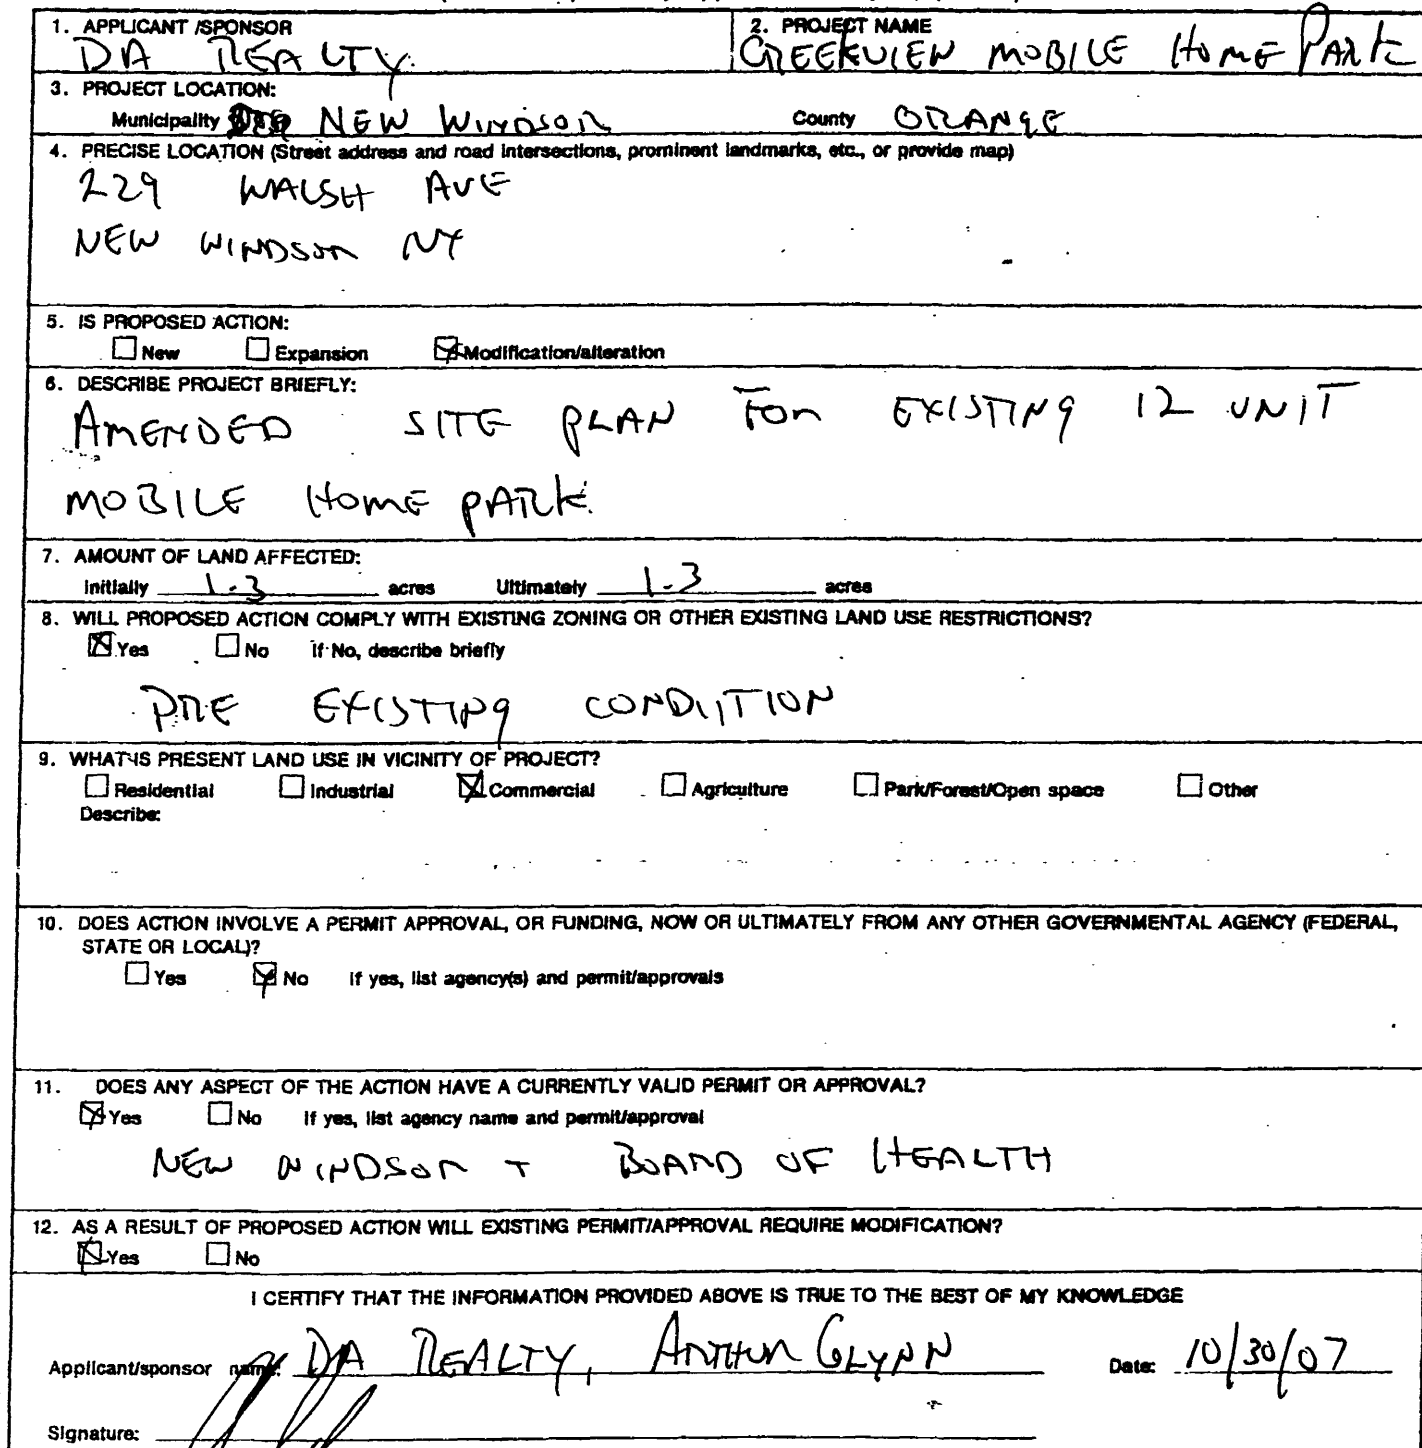 1. APPLICANT /SPONSOR
DA REALTY
2. PROJECT NAME
CREEKVIEW MOBILE HOME PARK
3. PROJECT LOCATION:
Municipality NEW WINDSOR County ORANGE
4. PRECISE LOCATION (Street address and road intersections, prominent landmarks, etc., or provide map)
229 WALSH AVE
NEW WINDSOR NY
5. IS PROPOSED ACTION:
New Expansion Modification/alteration
6. DESCRIBE PROJECT BRIEFLY:
AMENDED SITE PLAN FOR EXISTING 12 UNIT
MOBILE HOME PARK
7. AMOUNT OF LAND AFFECTED:
Initially 1.3 acres Ultimately 1.3 acres
8. WILL PROPOSED ACTION COMPLY WITH EXISTING ZONING OR OTHER EXISTING LAND USE RESTRICTIONS?
Yes No If No, describe briefly
PRE EXISTING CONDITION
9. WHAT IS PRESENT LAND USE IN VICINITY OF PROJECT?
Residential Industrial Commercial Agriculture Park/Forest/Open space Other
Describe:
10. DOES ACTION INVOLVE A PERMIT APPROVAL, OR FUNDING, NOW OR ULTIMATELY FROM ANY OTHER GOVERNMENTAL AGENCY (FEDERAL,
STATE OR LOCAL)?
Yes No If yes, list agency(s) and permit/approvals
11. DOES ANY ASPECT OF THE ACTION HAVE A CURRENTLY VALID PERMIT OR APPROVAL?
Yes No If yes, list agency name and permit/approval
NEW WINDSOR + BOARD OF HEALTH
12. AS A RESULT OF PROPOSED ACTION WILL EXISTING PERMIT/APPROVAL REQUIRE MODIFICATION?
Yes No
I CERTIFY THAT THE INFORMATION PROVIDED ABOVE IS TRUE TO THE BEST OF MY KNOWLEDGE
Applicant/sponsor name: DA REALTY, ARTHUR GLYNN Date: 10/30/07
Signature: